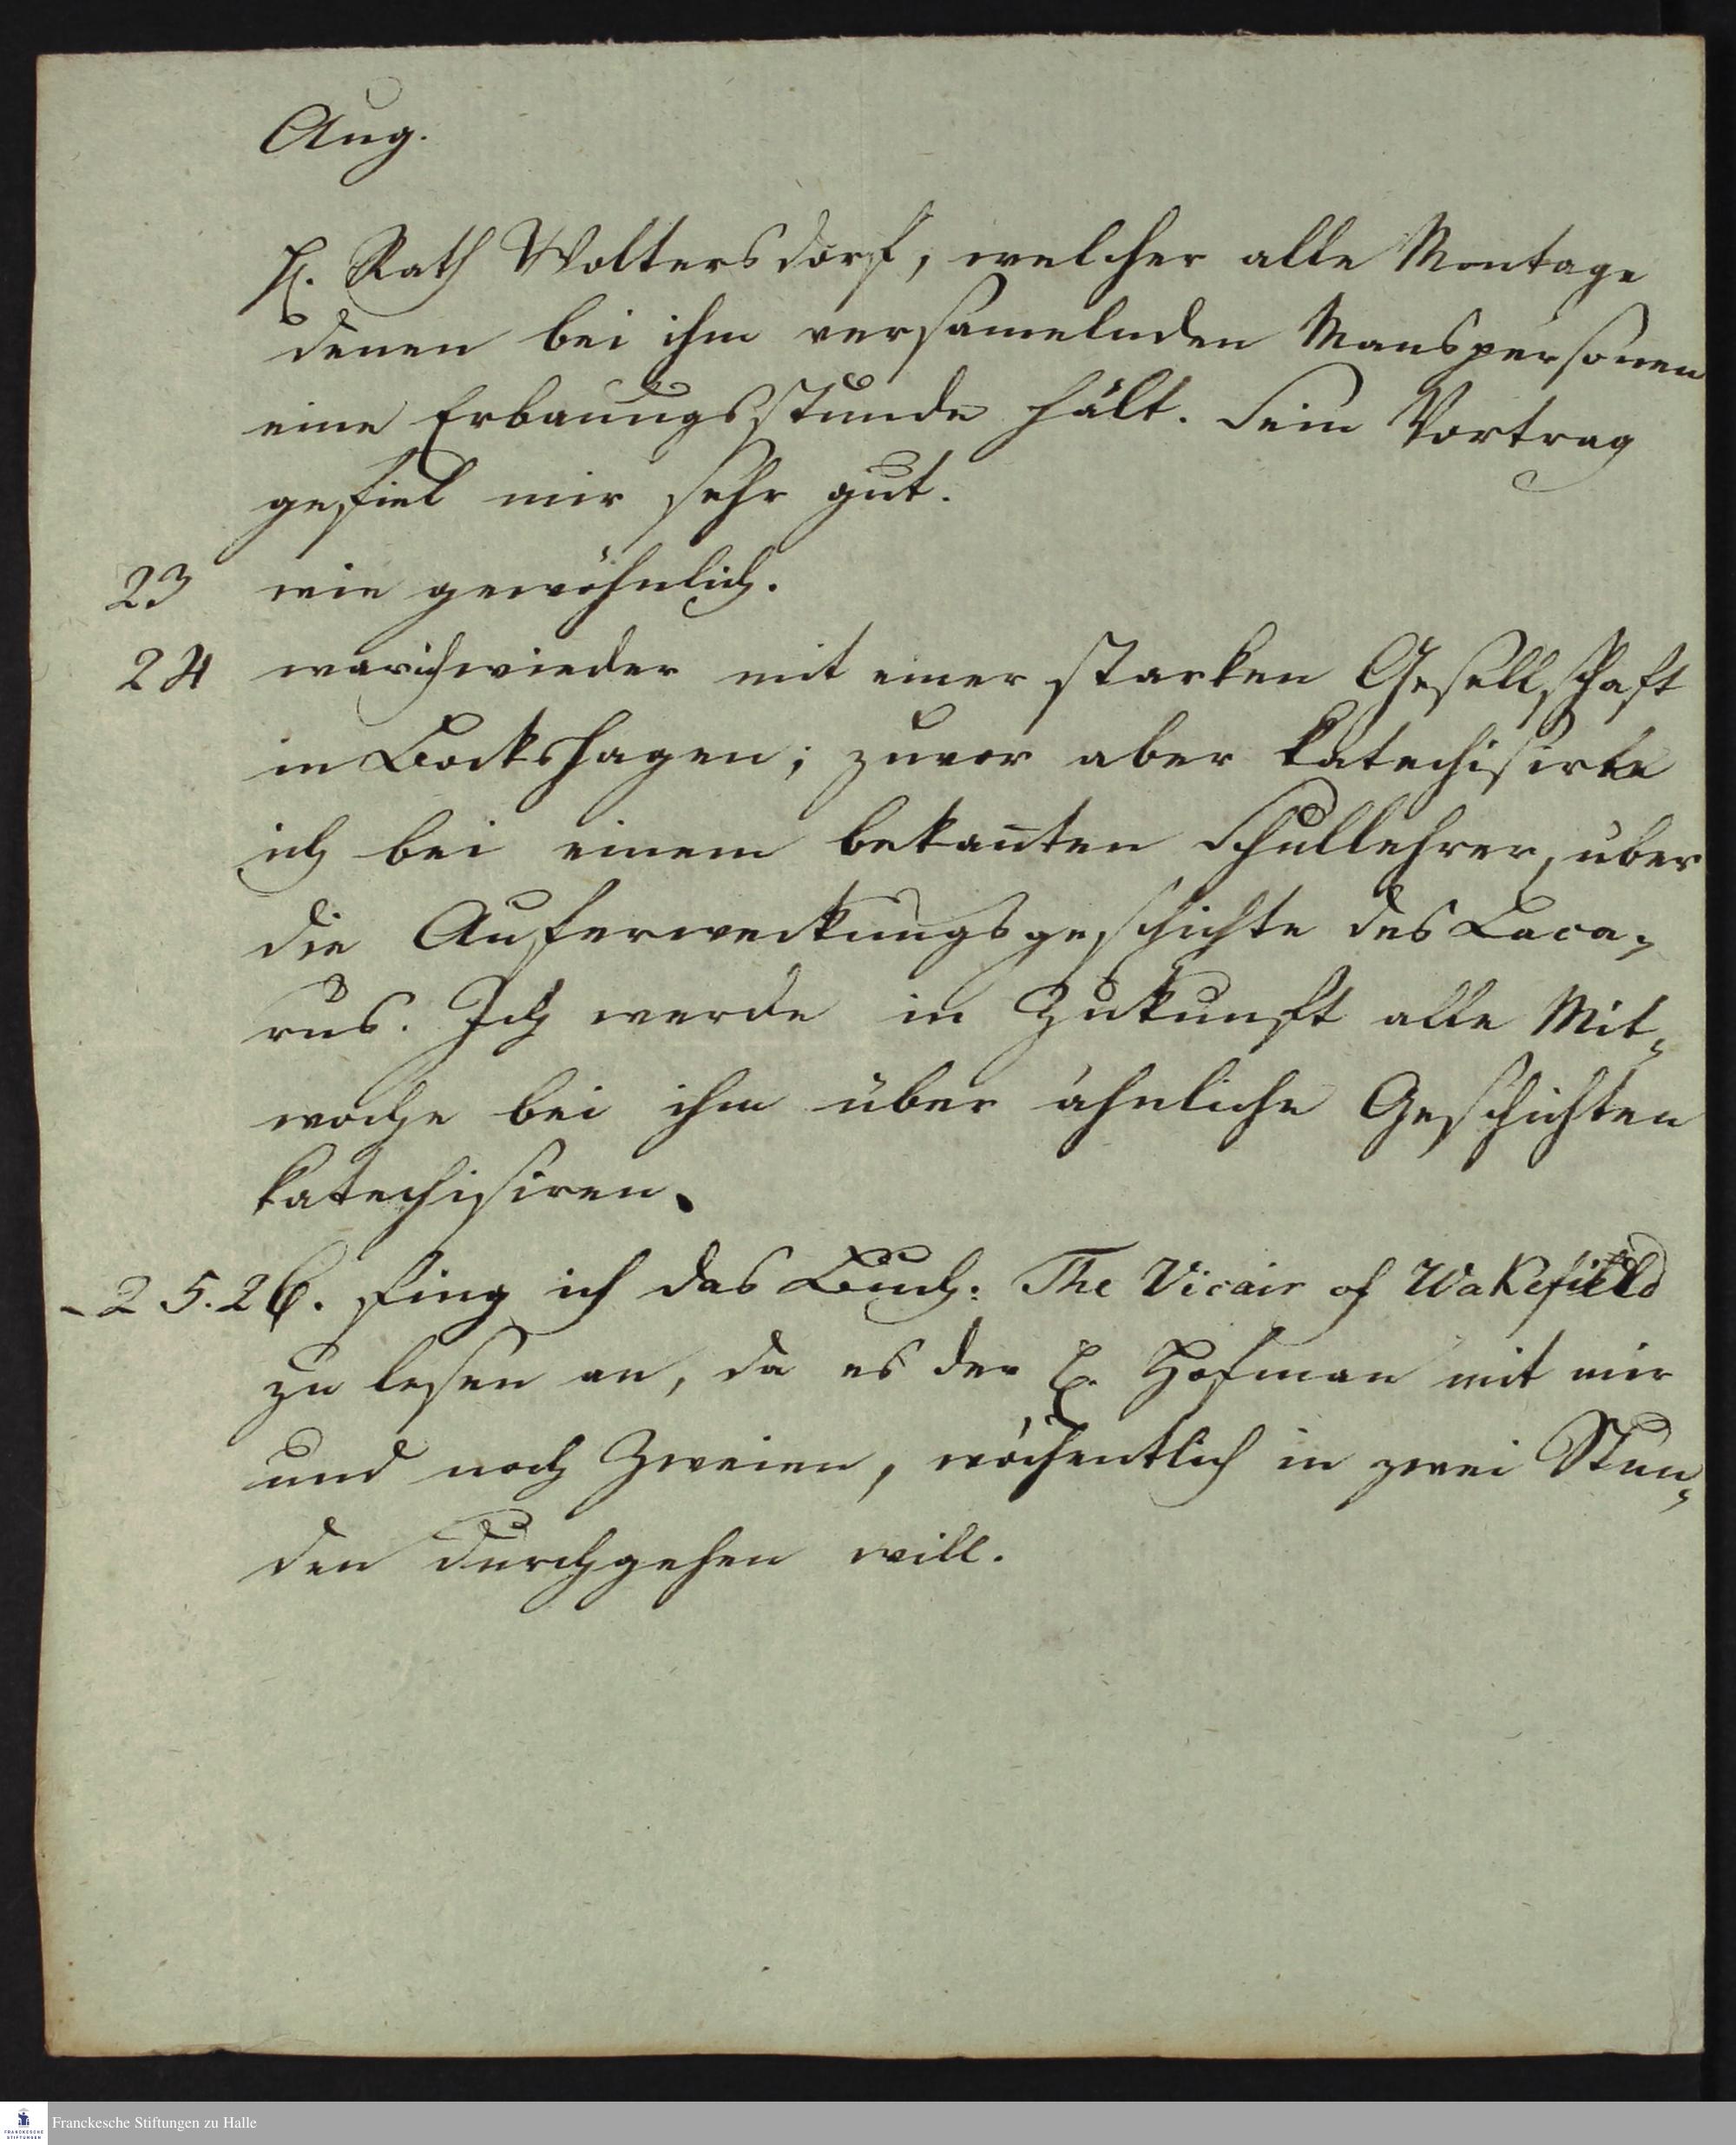 Aug.
H. Rath Woltersdorf, welcher alle Montage
denen bei ihm versamelnden Manspersonen
eine Erbauungsstunde hält. Sein Vortrag
gefiel mir sehr gut.
23 wie gewöhnlich.
24 war ich wieder mit einer starken Gesellschaft
in Bockshagen; zuvor aber katechisirte
ich bei einem bekan̄ten Schullehrer, über
die Auferweckungsgeschichte des Laca„
rus. Ich werde in Zukunft alle Mit„
woche bei ihm über ähnliche Geschichten
katechisiren.
-25.26. fing ich das Buch: The Vicair of Wakefield
zu lesen an, da es der H. Hofman mit mir
und noch Zweien, wöchentlich in zwei Stun„
den durchgehen will.
Franckesche Stiftungen zu Halle
FRANCKESCHE
STIFTUNGEN